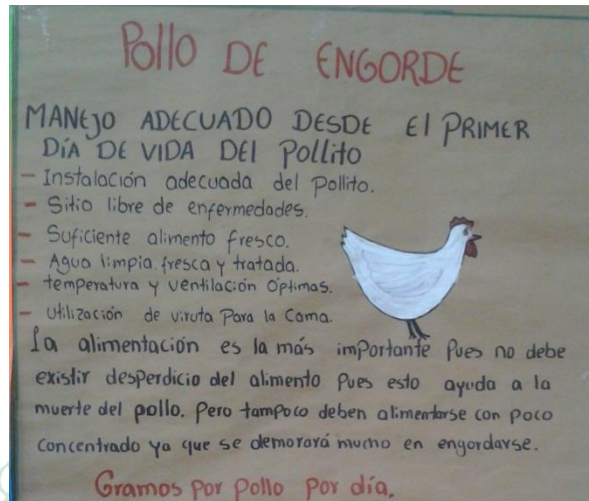 Pollo DE ENGORDE
MANEJO ADECUADO DESDE El PRIMER
DÍA DE VIDA DEl Pollito
- Instalación adecuada del Pollito.
- Sitio libre de enfermedades.
- Suficiente alimento fresco.
- Agua limpia, fresca y tratada.
- temperatura y ventilación óptimas.
- Utilización de viruta Para la Cama.
La alimentación es la más importante Pues no debe
existir desperdicio del alimento Pues esto ayuda a la
muerte del pollo. Pero tampoco deben alimentarse con poco
concentrado ya que se demorará mucho en engordarse.
Gramos por pollo por día.